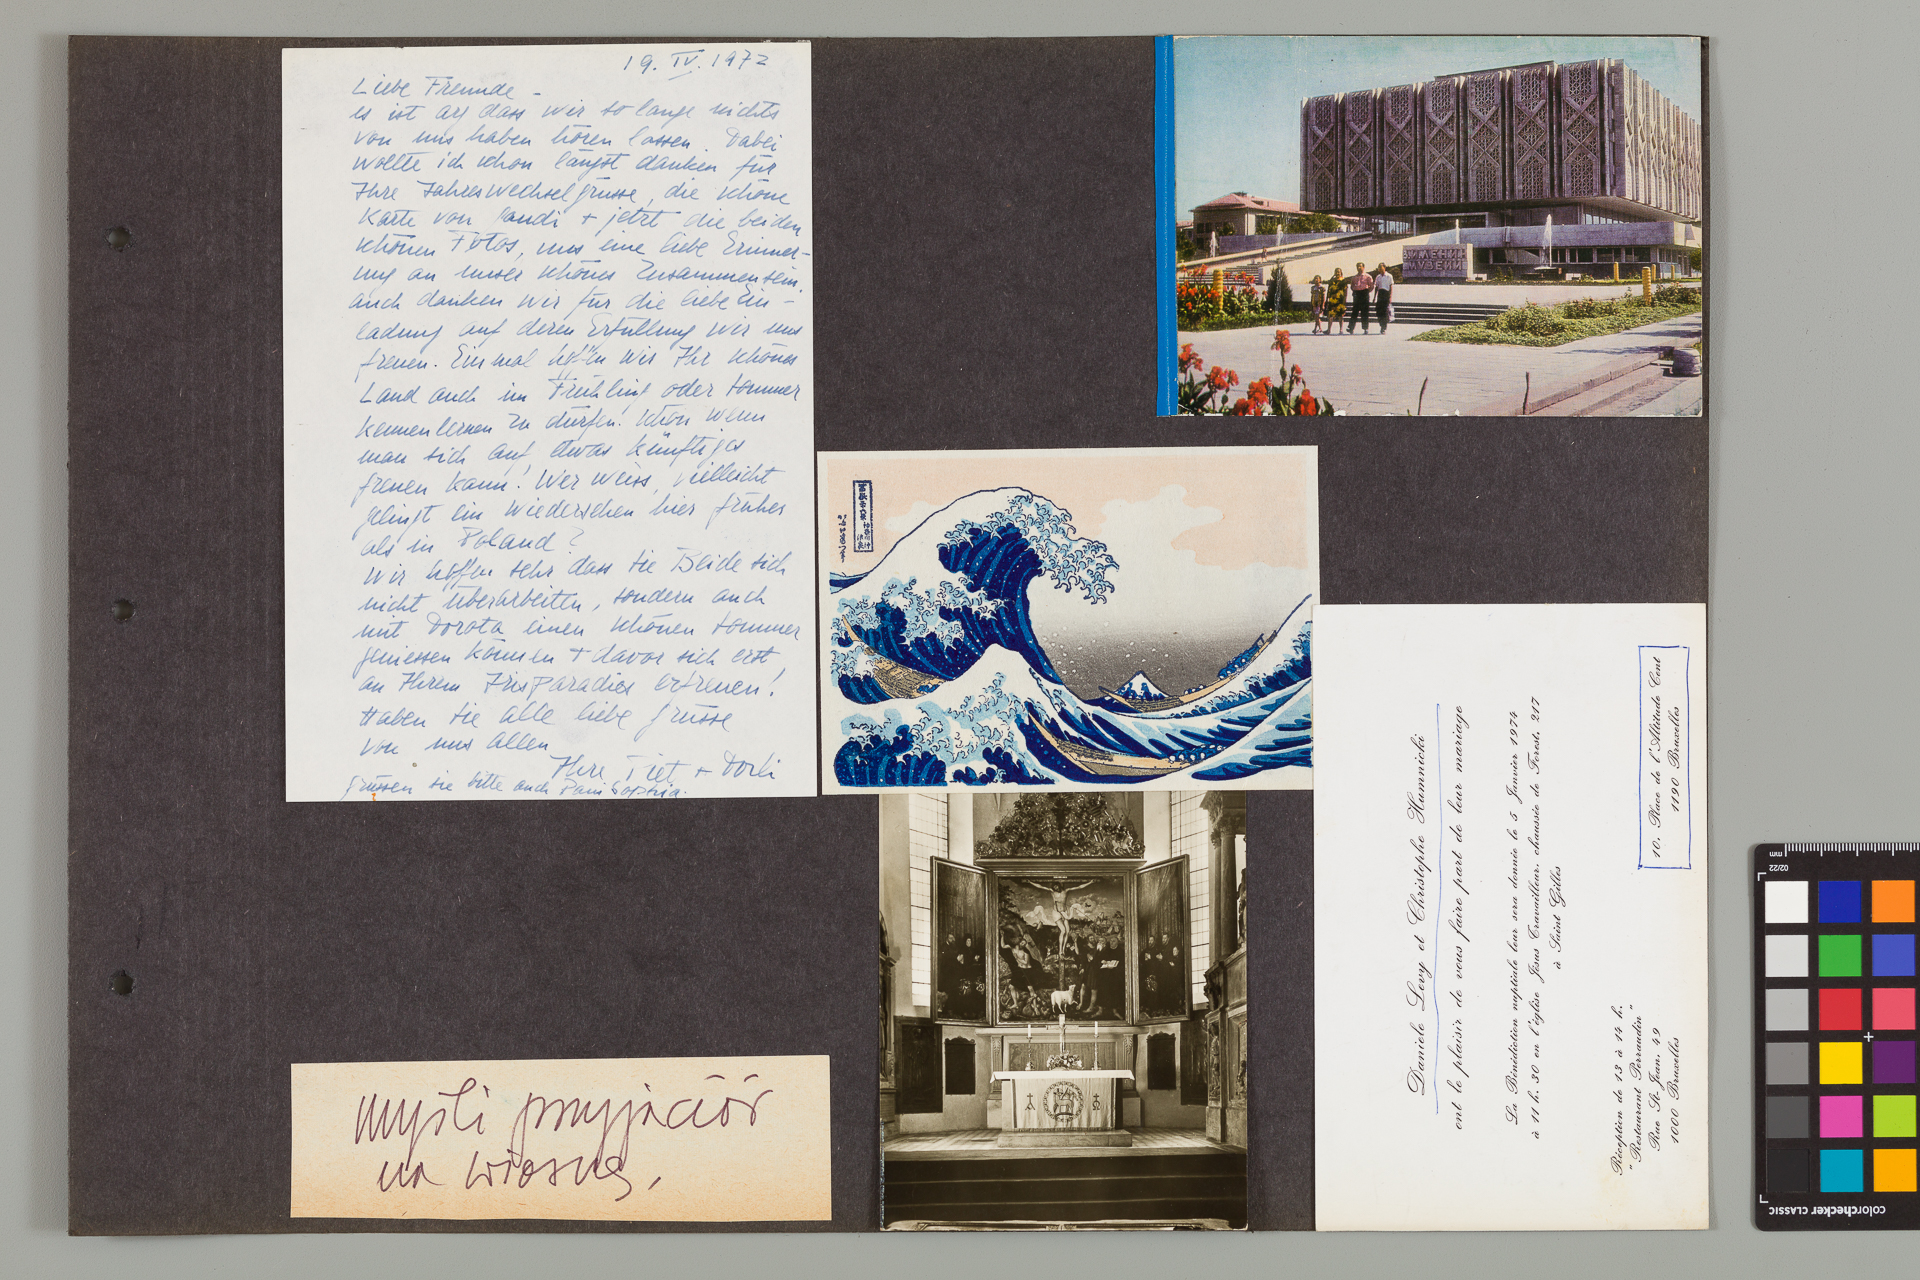 19. IV. 1972
Liebe Freunde -
es ist arg dass wir so lange nichts
von uns haben hören lassen. Dabei
wollte ich schon längst danken für
Ihre Jahreswechselgrüsse, die schöne
Karte von + jetzt die beiden
schönen Fotos, uns eine liebe Erinner-
ung an unser schönes Zusammensein.
auch danken wir für die liebe Ein-
ladung auf deren Erfüllung wir uns
freuen. Einmal hoffen wir Ihr schönes
Land auch im Frühling oder Sommer
kennenlernen zu dürfen. Schön wenn
man sich auf etwas künftiges
freuen kann! Wer weiss, vielleicht
gelingt ein Wiedersehen hier früher
als in Poland?
Wir hoffen sehr dass Sie Beide sich
nicht überarbeiten, sondern auch
mit Dorota einen schönen Sommer
geniessen können + davor sich erst
an Ihrem Irisparadies erfreuen!
Haben Sie alle liebe Grüsse
von uns allen
Ihre Tiet + Dorli
Grüssen sie bitte auch Pani Sophia.
В.И.ЛЕНИН
МУЗЕЙИ
冨嶽三十六景
神奈川沖
浪裏
myśli przyjaciół
na wiosnę,
A Ω
Daniele Levy et Christophe Humnicki
ont le plaisir de vous faire part de leur mariage
La Bénédiction nuptiale leur sera donnée le 5 Janvier 1974
à 11 h. 30 en l'église Jésus Travailleur, chaussée de Forest, 217
à Saint Gilles
Réception de 13 à 14 h.
"Restaurant Perraudin"
Rue St-Jean, 49
1000 Bruxelles
10, Place de l'Altitude Cent
1190 Bruxelles
mm
02/22
colorchecker CLASSIC